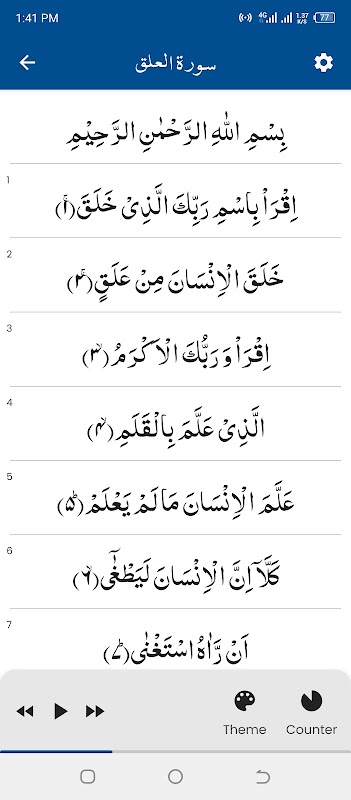 1:41 PM 4G 1.37 K/S 77
سورة العلق
بِسْمِ اللّٰهِ الرَّحْمٰنِ الرَّحِيْمِ
1
اِقْرَاْ بِاسْمِ رَبِّكَ الَّذِىْ خَلَقَ‌ۚ‏ ﴿۱﴾
2
خَلَقَ الْاِنْسَانَ مِنْ عَلَقٍ‌ۚ‏ ﴿۲﴾
3
اِقْرَاْ وَرَبُّكَ الْاَكْرَمُۙ‏ ﴿۳﴾
4
الَّذِىْ عَلَّمَ بِالْقَلَمِۙ‏ ﴿۴﴾
5
عَلَّمَ الْاِنْسَانَ مَا لَمْ يَعْلَمْؕ‏ ﴿۵﴾
6
كَلَّاۤ اِنَّ الْاِنْسَانَ لَيَطْغٰٓىۙ‏ ﴿۶﴾
7
اَنْ رَّاٰهُ اسْتَغْنٰىؕ‏ ﴿۷﴾
Theme Counter